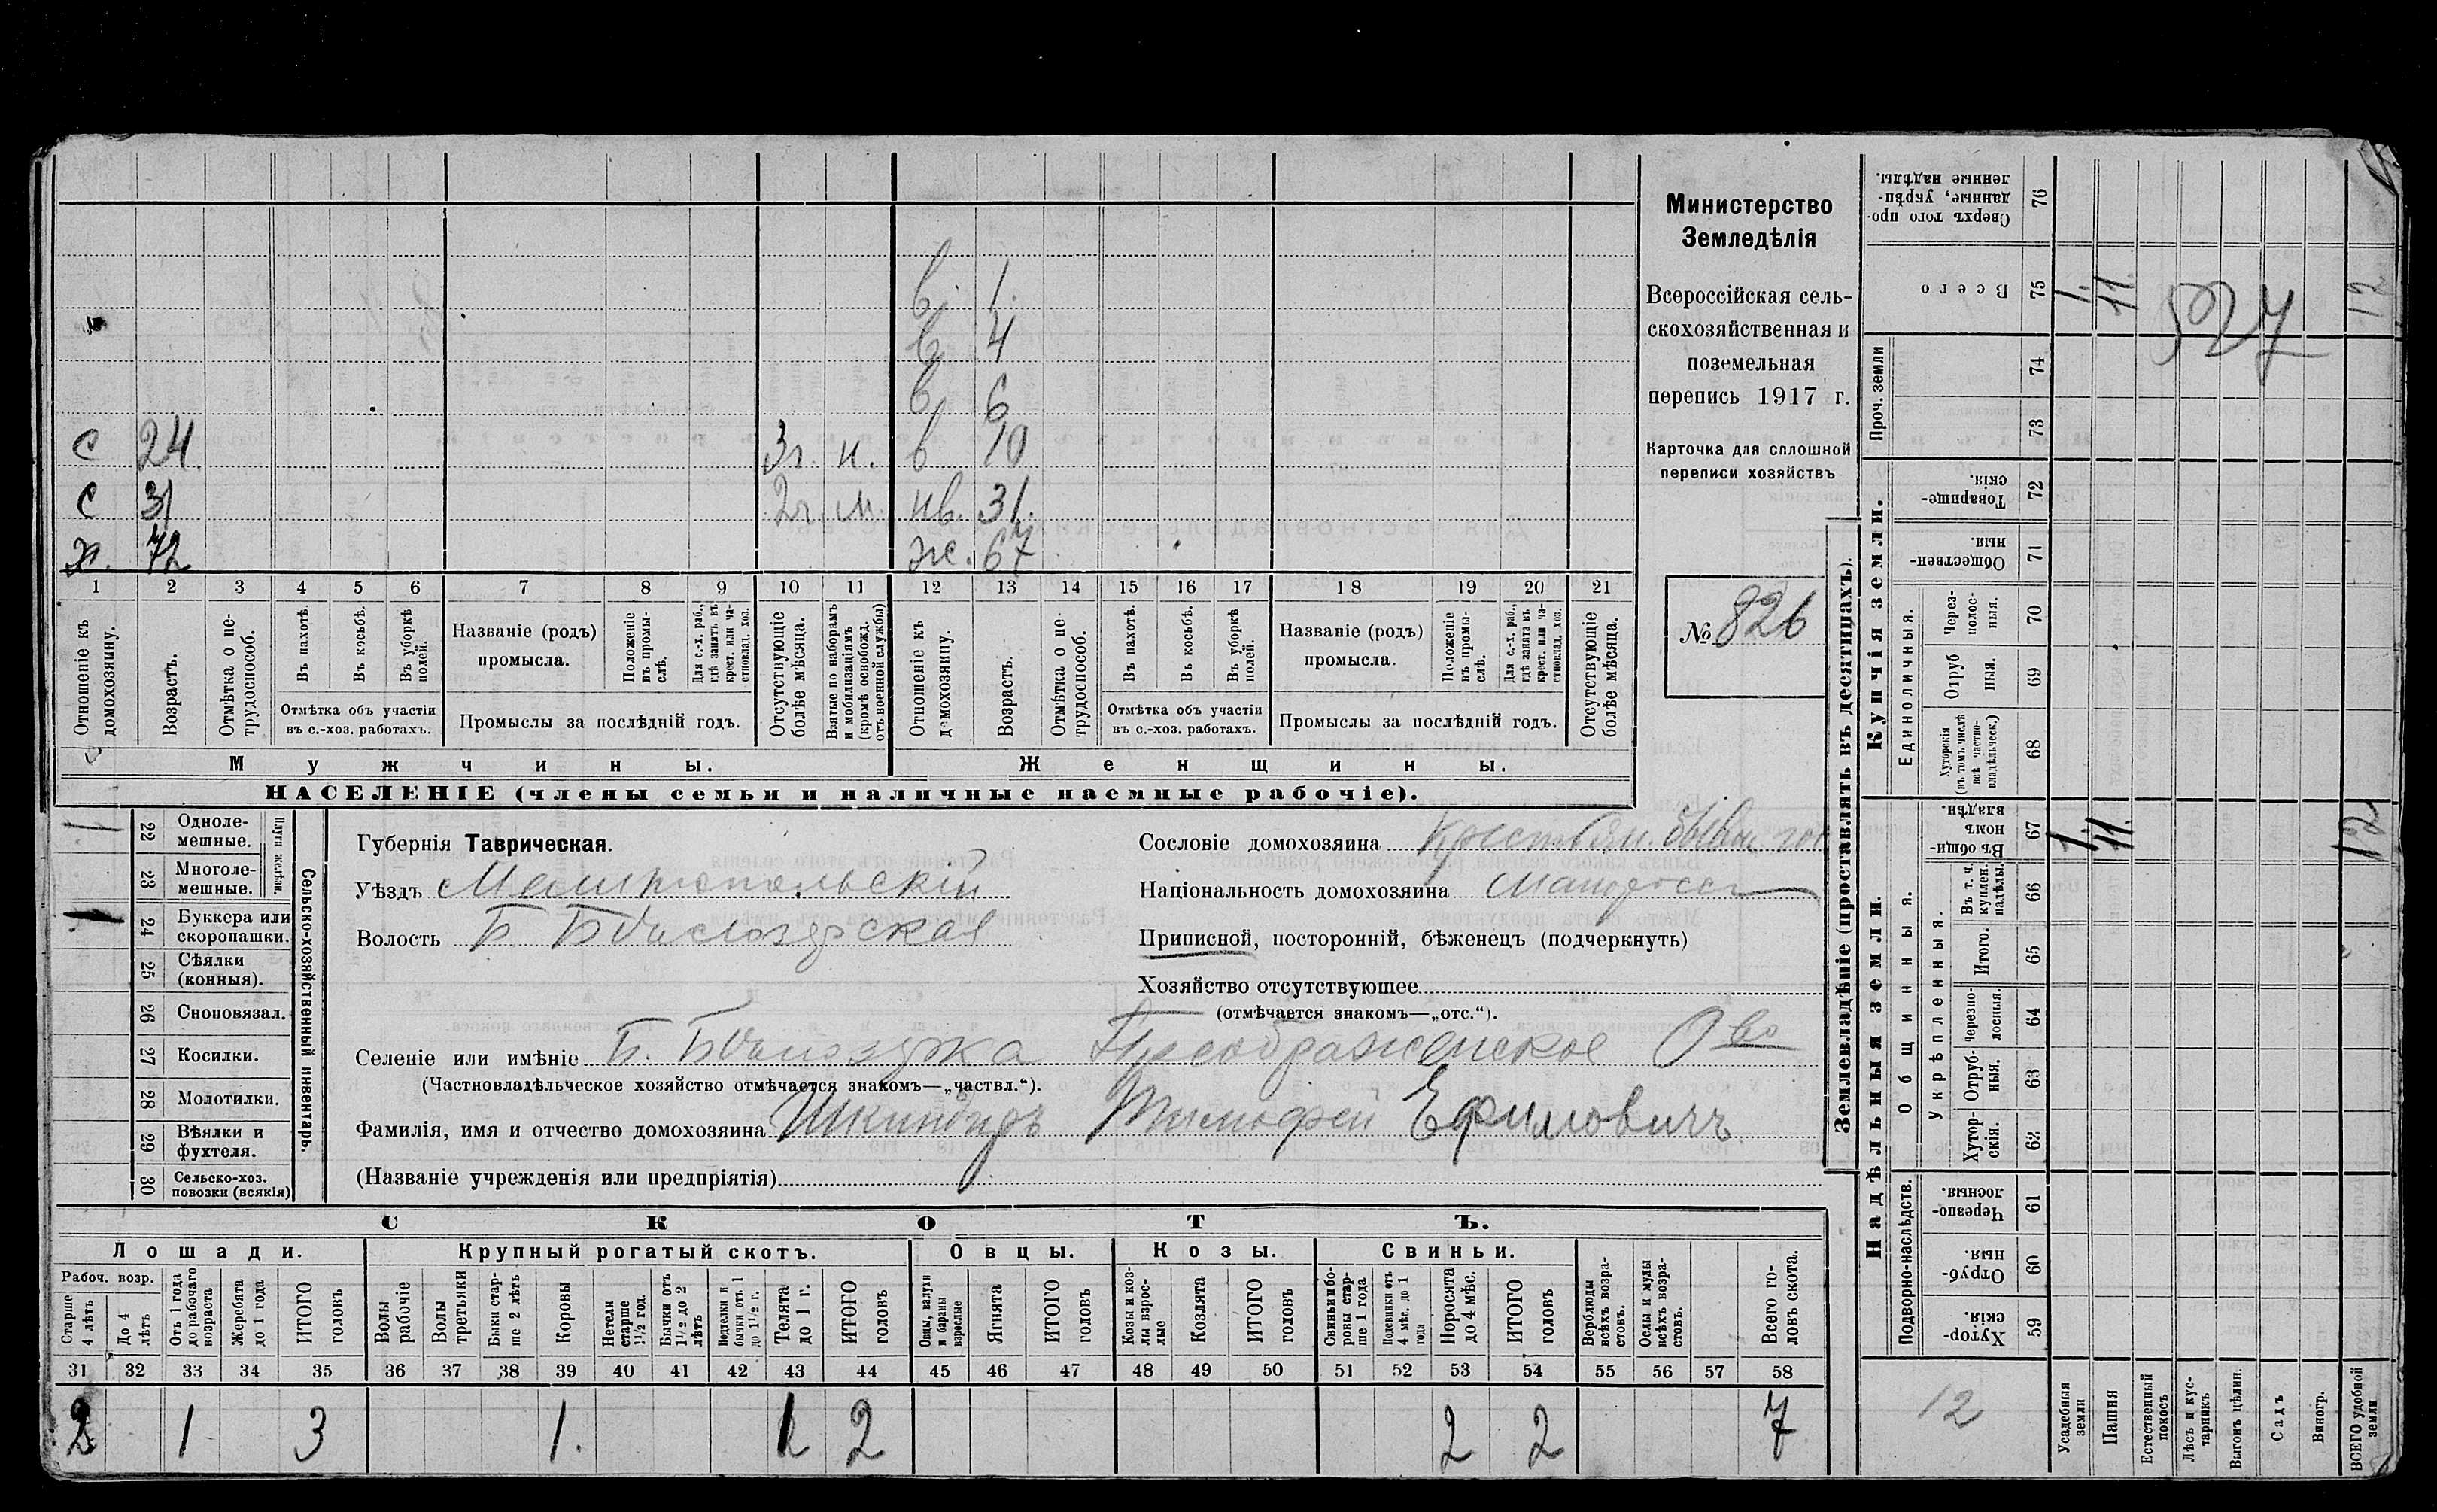 в. 1.
в 4
в 6
С 24. 3г. н. в 10
С 31 2г. м. нв. 31.
х. 72 ж. 67
1 2 3 4 5 6 7 8 9 10 11 12 13 14 15 16 17 18 19 20 21
Отношеніе къ домохозяину.
Возрастъ.
Отмѣтка о не-трудоспособ.
Въ пахотѣ.
Въ косьбѣ.
Въ уборкѣ полей.
Отмѣтка объ участіи
въ с.-хоз. работахъ.
Названіе (родъ)
промысла.
Положеніе въ промы-слѣ.
Для с.-х. раб., гдѣ занятъ въ крест. или ча-стновлад. хоз.
Промыслы за послѣдній годъ.
Отсутствующіе болѣе мѣсяца.
Взятые по наборамъ и мобилизаціямъ (кромѣ освобожд. отъ военной службы)
Отношеніе къ домохозяину.
Возрастъ.
Отмѣтка о не-трудоспособ.
Въ пахотѣ.
Въ косьбѣ.
Въ уборкѣ полей.
Отмѣтка объ участіи
въ с.-хоз. работахъ.
Названіе (родъ)
промысла.
Положеніе въ промы-слѣ.
Для с.-х. раб., гдѣ занята въ крест. или ча-стновлад. хоз.
Промыслы за послѣдній годъ.
Отсутствующіе болѣе мѣсяца.
Мужчины. Женщины.
НАСЕЛЕНІЕ (члены семьи и наличные наемные рабочіе).
Министерство
Земледѣлія
Всероссійская сель-
скохозяйственная и
поземельная
перепись 1917 г.
Карточка для сплошной
переписи хозяйствъ
№ 826
1 22 Одноле-мешные.
23 Многоле-мешные.
Плуги желѣзн.
24 Буккера или скоропашки.
25 Сѣялки (конныя).
26 Сноповязал.
27 Косилки.
28 Молотилки.
29 Вѣялки и фухтеля.
30 Сельско-хоз. повозки (всякія)
Сельско-хозяйственный инвентарь.
Губернія Таврическая.
Уѣздъ Мелитопольскій
Волость Б Бѣлозерская
Сословіе домохозяина Крестьян. бывш. гос
Національность домохозяина Малоросс
Приписной, посторонній, бѣженецъ (подчеркнуть)
Хозяйство отсутствующее
(отмѣчается знакомъ—„отс.“).
Селеніе или имѣніе Б. Бѣлозерка Преображенское О-во
(Частновладѣльческое хозяйство отмѣчается знакомъ—„частвл.“).
Фамилія, имя и отчество домохозяина Тимофей Ефимовичъ
(Названіе учрежденія или предпріятія)
СКОТЪ.
Лошади. Крупный рогатый скотъ. Овцы. Козы. Свиньи.
Рабоч. возр.
Старше 4 лѣтъ
До 4 лѣтъ
Отъ 1 года до рабочаго возраста
Жеребята до 1 года
ИТОГО головъ
Волы рабочіе
Волы третьяки
Быки стар-ше 2 лѣтъ
Коровы
Нетели старше 1½ год.
Бычки отъ 1½ до 2 лѣтъ
Подтелки и бычки отъ 1 до 1½ г.
Телята до 1 г.
ИТОГО головъ
Овцы, валухи и бараны взрослые
Ягнята
ИТОГО головъ
Козы и коз-лы взрос-лые
Козлята
ИТОГО головъ
Свиньи и бо-ровы стар-ше 1 года
Подсвинки отъ 4 мѣс. до 1 года
Поросята до 4 мѣс.
ИТОГО головъ
Верблюды всѣхъ возра-стовъ.
Ослы и мулы всѣхъ возра-стовъ.
Всего го-ловъ скота.
31 32 33 34 35 36 37 38 39 40 41 42 43 44 45 46 47 48 49 50 51 52 53 54 55 56 57 58
2 1 3 1. 1 2 2 2 7
Землевладѣніе (проставлять въ десятинахъ).
Сверхъ того про-данные, укрѣп-ленные надѣлы. 76
Всего 75 1. 11. 527 12
Проч. земли 74 73
Купчія земли.
Товарище-скія. 72
Обществен-ныя. 71
Единоличныя.
Через-полос-ныя. 70
Отруб ныя. 69
Хуторскія (въ томъ числѣ всѣ частно-владѣльческ.) 68
Надѣльныя земли.
Общинныя.
Въ общи-номъ владѣн. 67 1. 11. 12
Укрѣпленныя.
Въ т. ч. куплен. надѣлы. 66
Итого. 65
Черезпо-лосныя. 64
Отруб-ныя. 63
Хутор-скія. 62
Подворно-наслѣдств.
Черезпо-лосныя. 61
Отруб-ныя. 60
Хутор-скія. 59
12
Усадебныя земли
Пашня
Естественный покосъ
Лѣсъ и кус-тарникъ
Выгонъ цѣлин.
Садъ
Виногр.
ВСЕГО удобной земли